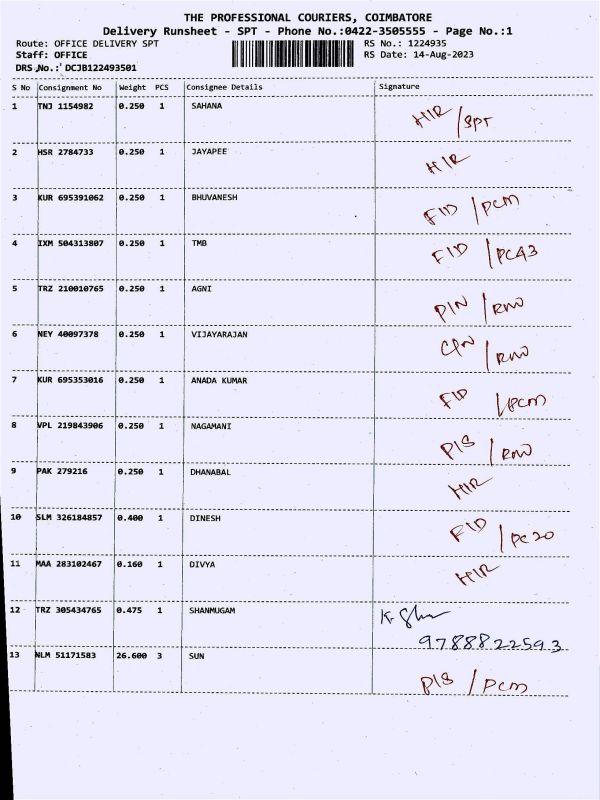 THE PROFESSIONAL COURIERS, COIMBATORE
Delivery Runsheet - SPT - Phone No.:0422-3505555 - Page No.:1
Route: OFFICE DELIVERY SPT RS No.: 1224935
Staff: OFFICE RS Date: 14-Aug-2023
DRS No.: DCJB122493501
S No Consignment No Weight PCS Consignee Details Signature
1 TNJ 1154982 0.250 1 SAHANA HIR /SPT
2 HSR 2784733 0.250 1 JAYAPEE HIR
3 KUR 695391062 0.250 1 BHUVANESH FID /PCM
4 IXM 504313807 0.250 1 TMB FID /PC43
5 TRZ 210010765 0.250 1 AGNI PIN /RMO
6 NEY 40097378 0.250 1 VIJAYARAJAN
7 KUR 695353016 0.250 1 ANADA KUMAR FID /PCM
8 VPL 219843906 0.250 1 NAGAMANI PIS /RMO
9 PAK 279216 0.250 1 DHANABAL HIR
10 SLM 326184857 0.400 1 DINESH FID /PC20
11 MAA 283102467 0.160 1 DIVYA HIR
12 TRZ 305434765 0.475 1 SHANMUGAM
9788822593
13 NLM 51171583 26.600 3 SUN PIS /PCM